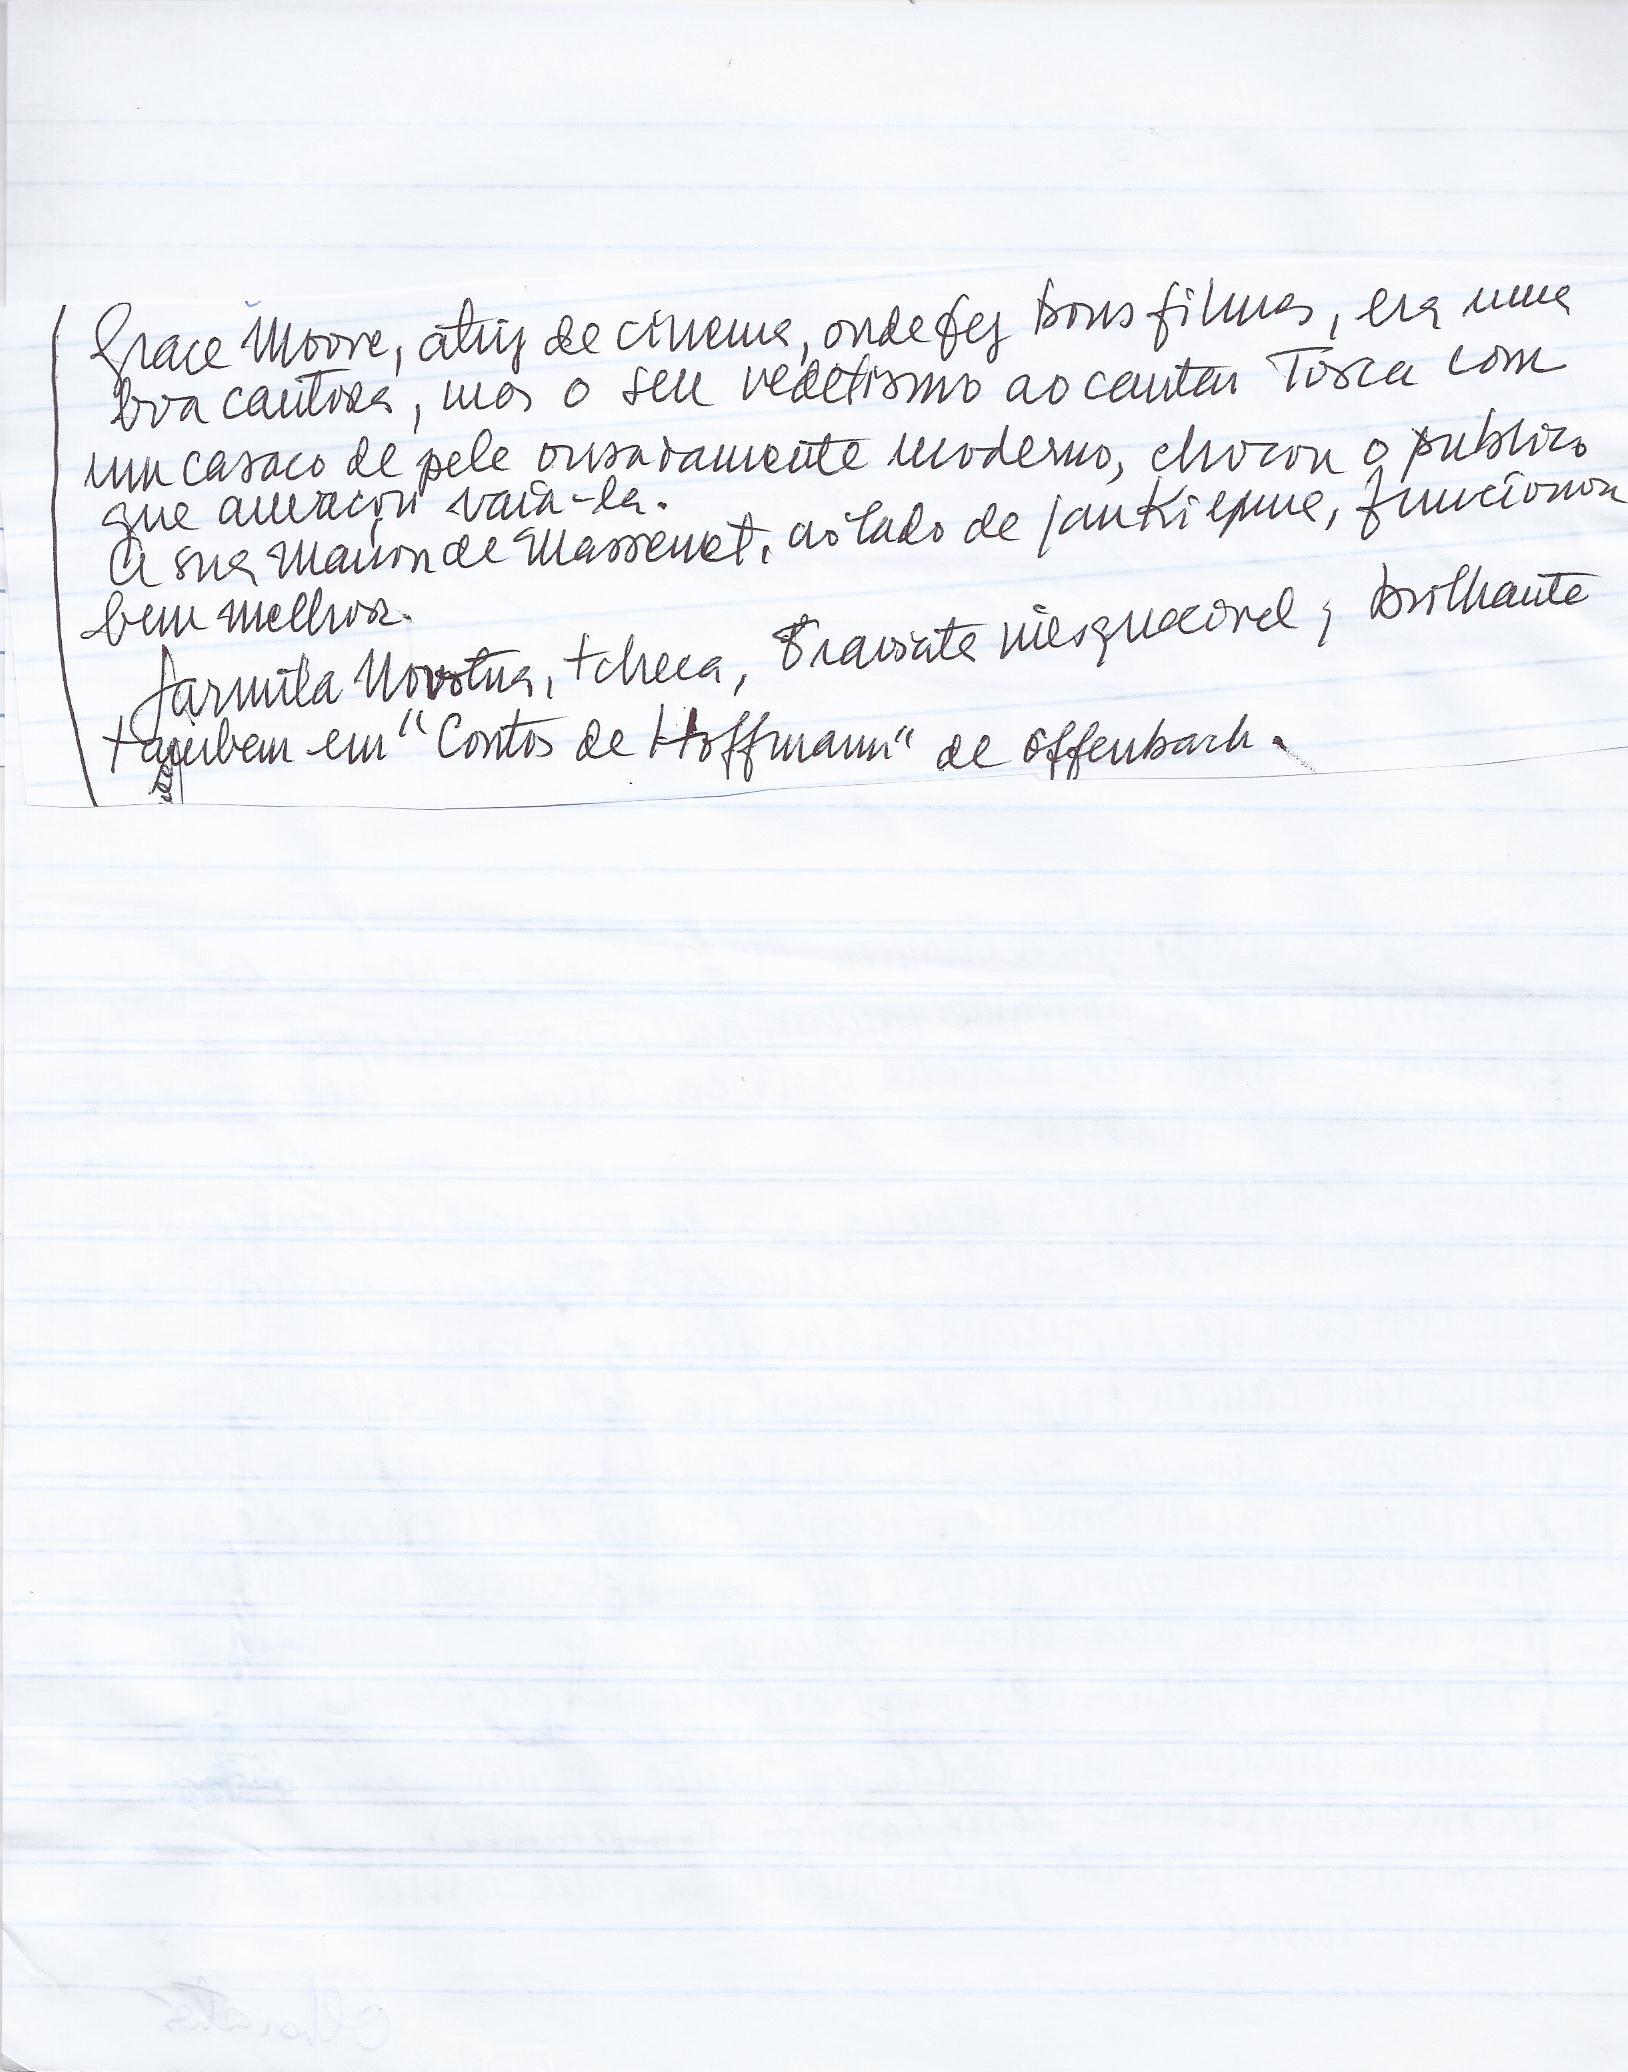 Grace Moore, atriz de cinema, onde fez bons filmes, era uma
boa cantora, mas o seu vedetismo ao cantar Tosca com
um casaco de pele ousadamente moderno, chocou o publico
que ameaçou vaia-la.
A sua Manon de Massenet, ao lado de Jan Kiepura, funcionou
bem melhor.
Jarmila Novotna, tcheca, Traviata inesquecivel, brilhante
tambem em "Contos de Hoffmann" de Offenbach.